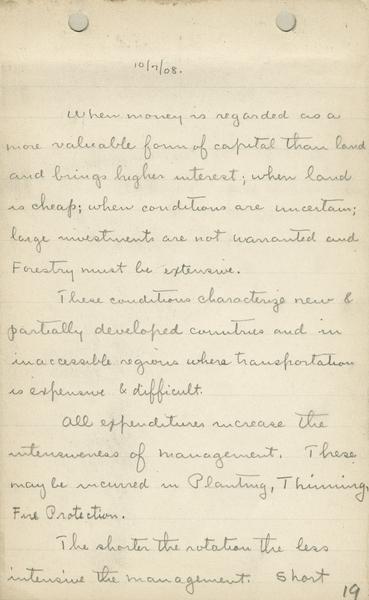 10/7/08.
When money is regarded as a
more valuable form of capital than land
and brings higher interest; when land
is cheap; when conditions are uncertain;
large investments are not warranted and
Forestry must be extensive.
These conditions characterize new &
partially developed countries and in
inaccessible regions where transportation
is expensive & difficult.
All expenditures increase the
intensiveness of management. These
may be incurred in Planting, Thinning,
Fire Protection.
The shorter the rotation the less
intensive the management. Short
19